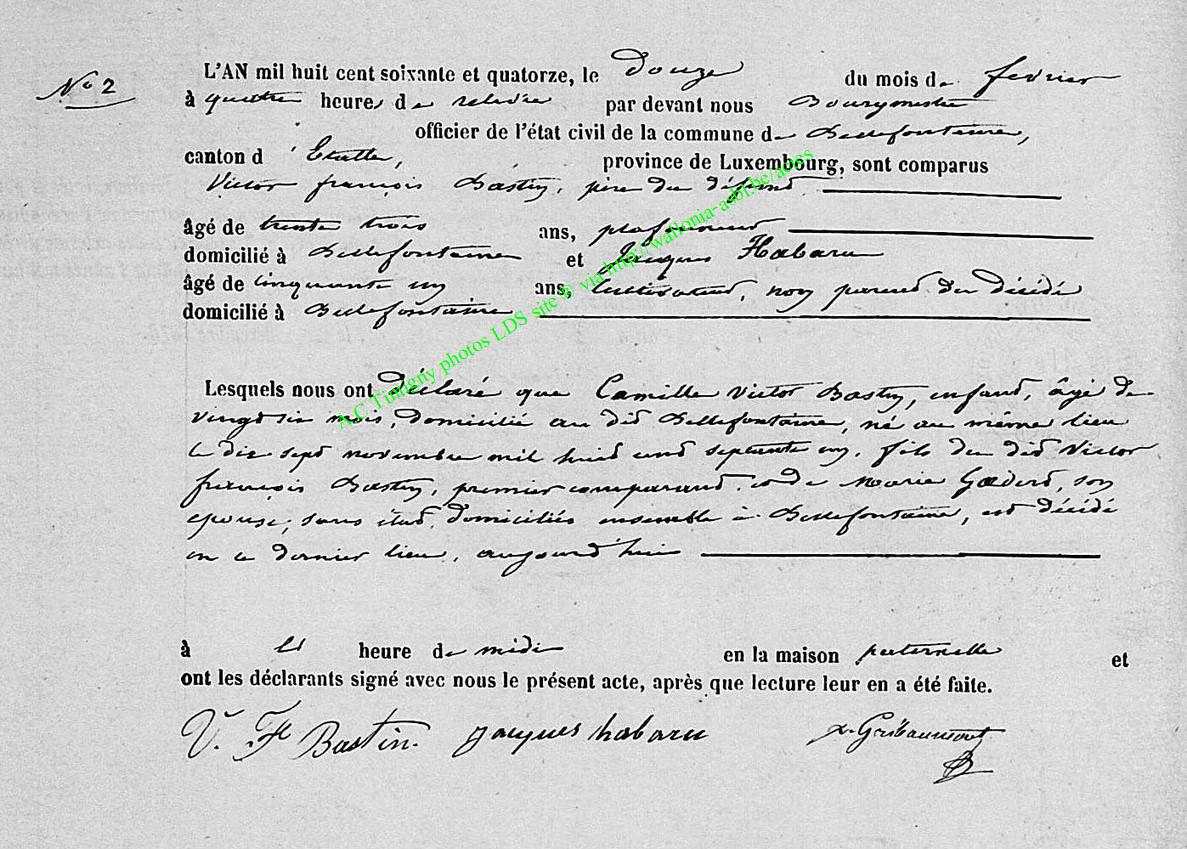 No 2
L'AN mil huit cent soixante et quatorze, le douze du mois de fevrier
à quatre heures de relevée par devant nous Bourgmestre
officier de l'état civil de la commune de Bellefontaine,
canton d'Etalle, province de Luxembourg, sont comparus
Victor françois Bastin, père du défunt
âgé de trente trois ans, plafonneur
domicilié à Bellefontaine et Jacques Habaru
âgé de cinquante un ans, Cultivateur, non parent du décédé
domicilié à Bellefontaine
Lesquels nous ont déclaré que Camille Victor Bastin, enfant, âgé de
vingt six mois, domicilié au dit Bellefontaine, né au même lieu
le dix sept novembre mil huit cent septante un, fils du dit Victor
françois Bastin, premier comparant, et de Marie Godert, son
epouse, sans état, domiciliés ensemble à Bellefontaine, est décédé
en ce dernier lieu, aujourd'hui
à heure de midi en la maison paternelle et
ont les déclarants signé avec nous le présent acte, après que lecture leur en a été faite.
V. Fs Bastin. jacques habaru Gribaumont
A.C Tintigny photos LDS site & via http:/wallonia-asbl.be/actes